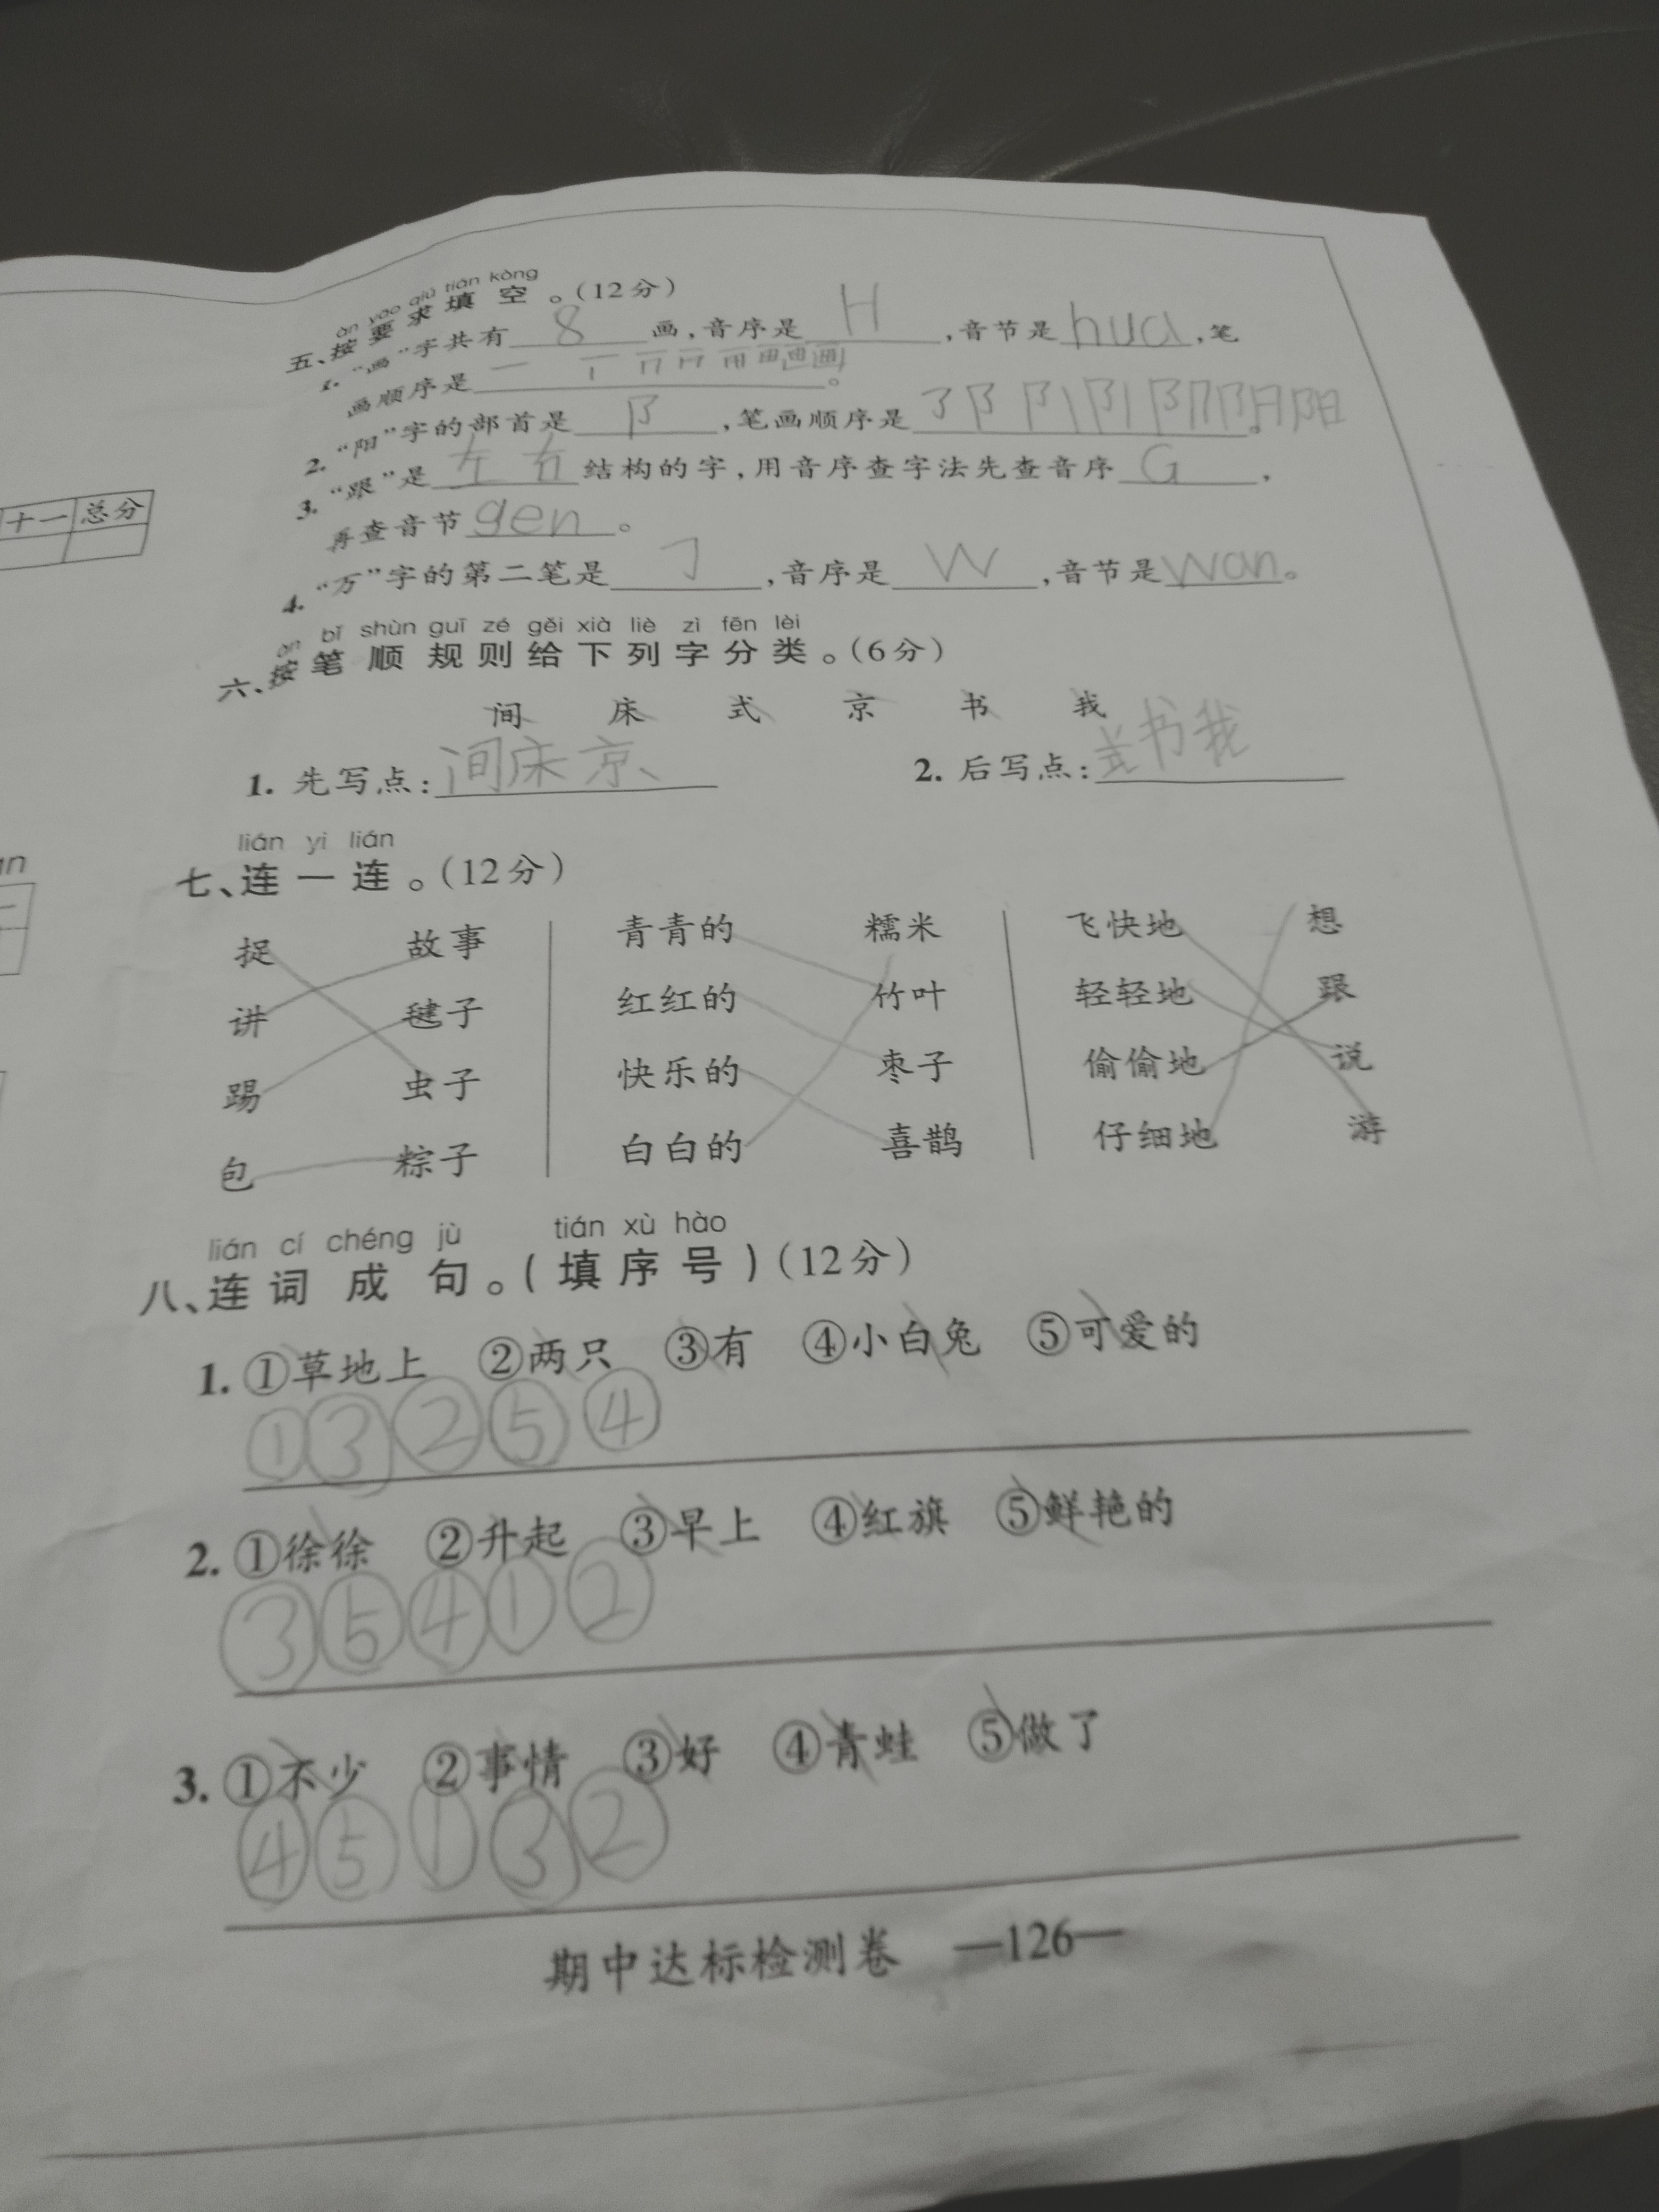 十一 总分
àn yāo qiú tián kòng
五、按要求填空。(12分)
1. “画”字共有 8 画,音序是 H ,音节是 hua ,笔
画顺序是 一
2. “阳”字的部首是 阝 ,笔画顺序是 。
3. “跟”是 左右 结构的字,用音序查字法先查音序 G ,
再查音节 gen 。
4. “万”字的第二笔是 ㇆ ,音序是 W ,音节是 wan 。
àn bǐ shùn guī zé gěi xià liè zì fēn lèi
六、按笔顺规则给下列字分类。(6分)
间 床 式 京 书 我
1. 先写点: 间床京、 2. 后写点: 式书我
lián yi lián
七、连一连。(12分)
捉 故事 青青的 糯米 飞快地 想
讲 毽子 红红的 竹叶 轻轻地 跟
踢 虫子 快乐的 枣子 偷偷地 说
包 粽子 白白的 喜鹊 仔细地 游
lián cí chéng jù tián xù hào
八、连词成句。(填序号)(12分)
1. ①草地上 ②两只 ③有 ④小白兔 ⑤可爱的
①③②⑤④
2. ①徐徐 ②升起 ③早上 ④红旗 ⑤鲜艳的
③⑤④①②
3. ①不少 ②事情 ③好 ④青蛙 ⑤做了
④⑤①③②
期中达标检测卷 —126—